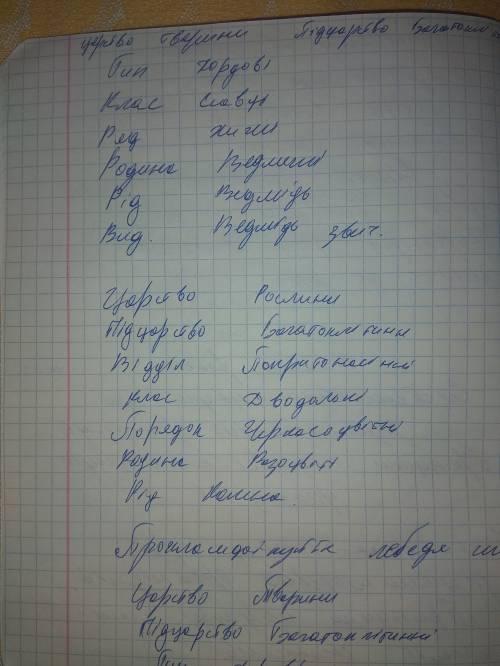 царство тварини Підцарство Багатокл
Тип Хордові
Клас Ссавці
Ряд Хижі
Родина Ведмежі
Рід Ведмідь
Вид. Ведмідь звич.
Царство Рослини
Підцарство Багатоклітинні
Відділ Покритонасінні
клас Дводольні
Порядок Черкасоцвітні
Родина Розоцвіті
Рід Калина.
лебедя
Царство Тварини
Підцарство Багатоклітинні